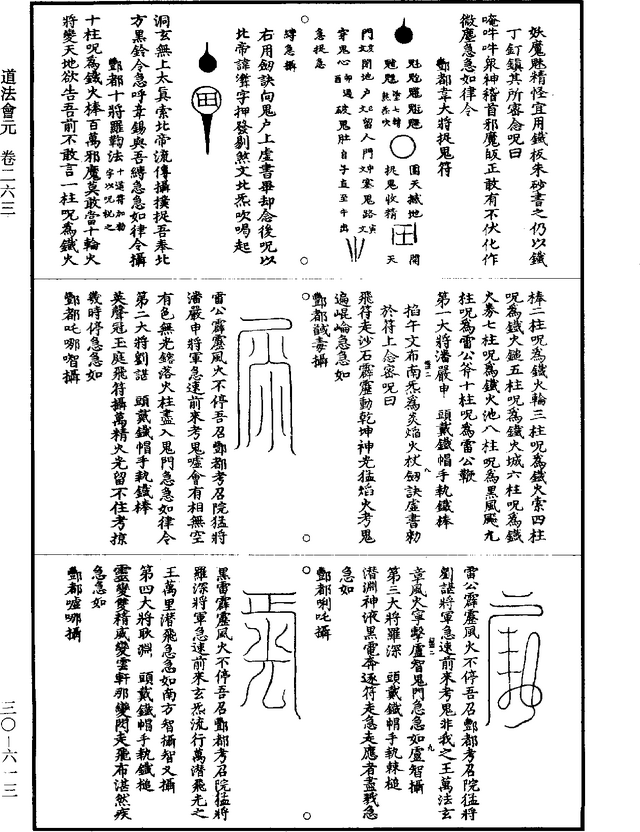 道法會元 卷二六三
三〇—六一三
妖魔魅精怪宜用鐵板朱砂書之仍以鐵
丁釘鎮其所密念呪曰
唵吽吽眾神稽首邪魔皈正敢有不伏化作
微塵急急如律令
酆都韋大將捉鬼符
魁魁
圍天撼地
捉鬼收精
閉地戶
留人門
塞鬼路
穿鬼心
破鬼肚
自子直至午出
急捉急
縛急攝
右用劒訣向鬼戶上虛書畢却念後呪以
比帝諱
字押發剔煞文北炁吹喝起
洞玄無上太真索北帝流傳攝撲捉吾奉北
方黑鈴令急呼韋錫與吾縛急急如律令攝
酆都十將羅鞫法
將變天地欲告吾前不敢言一柱呪為鐵火
十柱呪為鐵火棒百萬邪魔莫敢當十輪火
棒二柱呪為鐵火輪三柱呪為鐵火索四柱
呪為鐵火鎚五柱呪為鐵火城六柱呪為鐵
火券七柱呪為鐵火池八柱呪為黑風颷九
柱呪為雷公斧十柱呪為雷公鞭
第一大將潘嚴申 頭戴鐵帽手執鐵棒
掐午文布南炁為炎焰火杖劒訣虛書勑
於符上念密呪曰
飛符走沙石霹靂動乾坤神光猛焰火考鬼
遍崐崘急急如
酆都
毒攝
雷公霹靂風火不停吾召酆都考召院猛將
潘嚴申將軍急速前來考鬼噓會有相無空
有色無光鎗落火柱盡入鬼門急急如律令
第二大將劉諶 頭戴鐵帽手執鐵棒
英聲冠玉庭飛符攝萬精火光留不住考掠
幾時停急急如
酆都吒哪智攝
雷公霹靂風火不停吾召酆都考召院猛將
劉諶將軍急速前來考鬼非我之王萬法玄
章風火寧擊盧智鬼門急急如盧智攝
第三大將羅深 頭戴鐵帽手執棘槌
潛淵神液黑電奔逐符走急走應者盡戮急
急如
酆都唎吒攝
黑雷霹靂風火不停吾召酆都考召院猛將
羅深將軍急速前來玄炁流行萬潛飛光之
王萬里潛飛急急如南方智攝智又攝
第四大將耿淵 頭戴鐵帽手執鐵槌
靈變雙精威變雲軒那變閃走飛布湛然疾
急急如
酆都噓哪攝